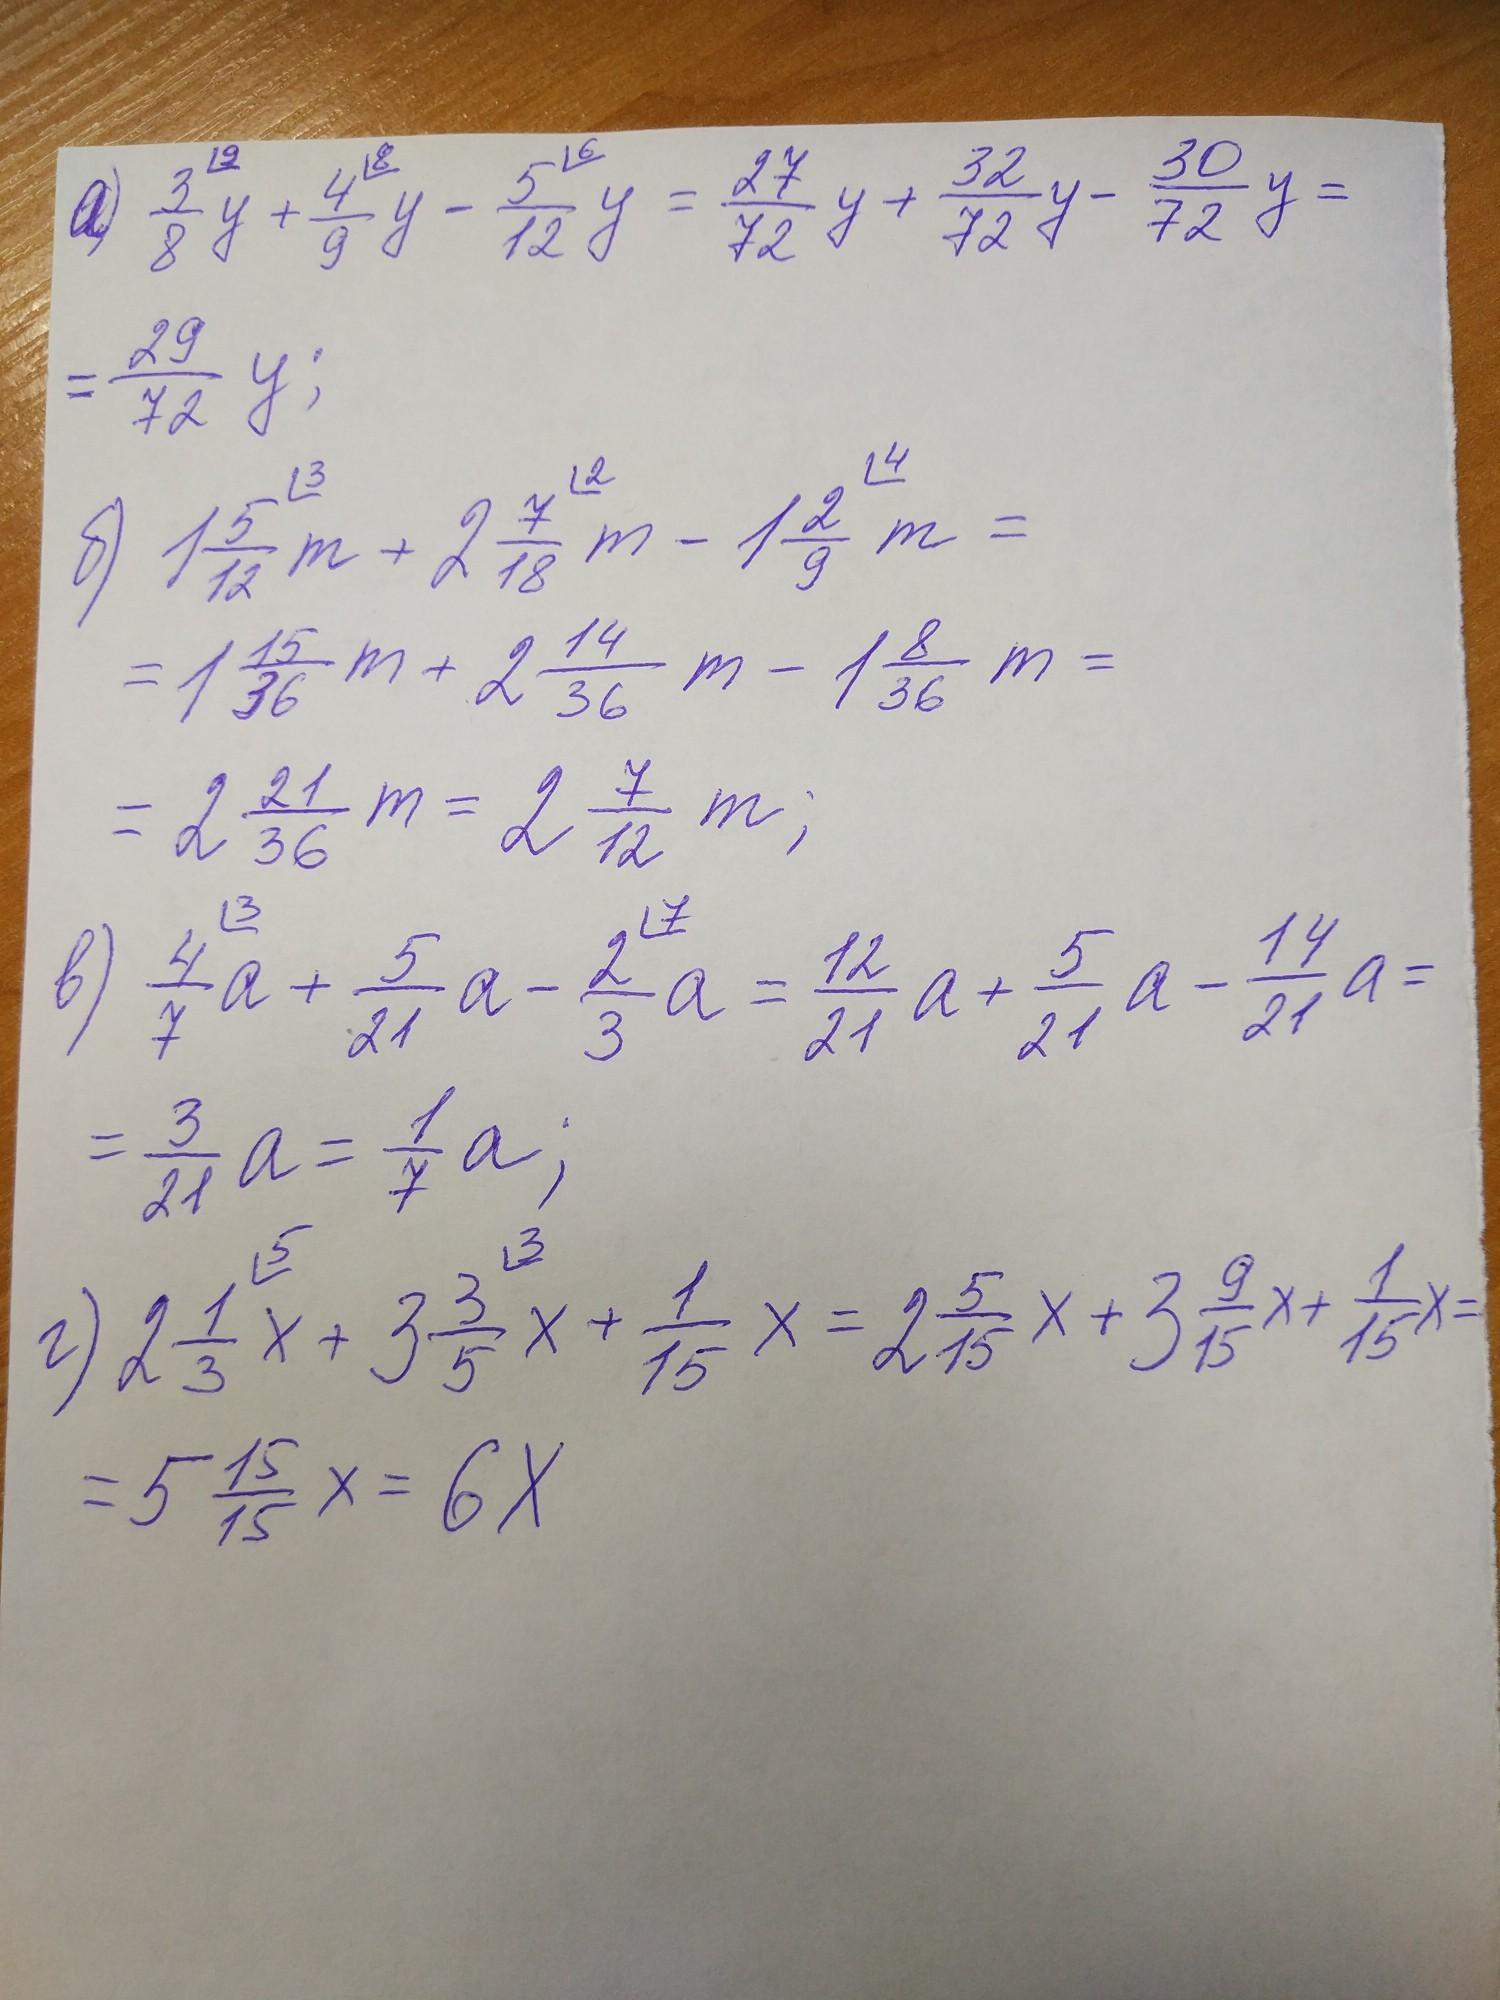 а) 3/8⌊9 y + 4/9⌊8 y - 5/12⌊6 y = 27/72 y + 32/72 y - 30/72 y =
= 29/72 y;
б) 1 5/12⌊3 m + 2 7/18⌊2 m - 1 2/9⌊4 m =
= 1 15/36 m + 2 14/36 m - 1 8/36 m =
= 2 21/36 m = 2 7/12 m;
в) 4/7⌊3 a + 5/21 a - 2/3⌊7 a = 12/21 a + 5/21 a - 14/21 a =
= 3/21 a = 1/7 a;
г) 2 1/3⌊5 x + 3 3/5⌊3 x + 1/15 x = 2 5/15 x + 3 9/15 x + 1/15 x =
= 5 15/15 x = 6x